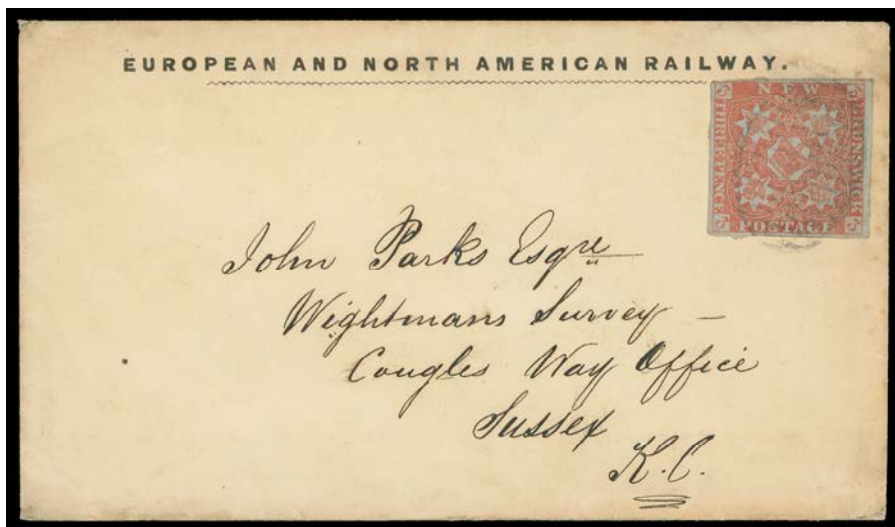 EUROPEAN AND NORTH AMERICAN RAILWAY.
NEW
BRUNSWICK
THREE PENCE
POSTAGE
John Parks Esqre
Wightmans Survey –
Cougles Way Office
Sussex
K.C.